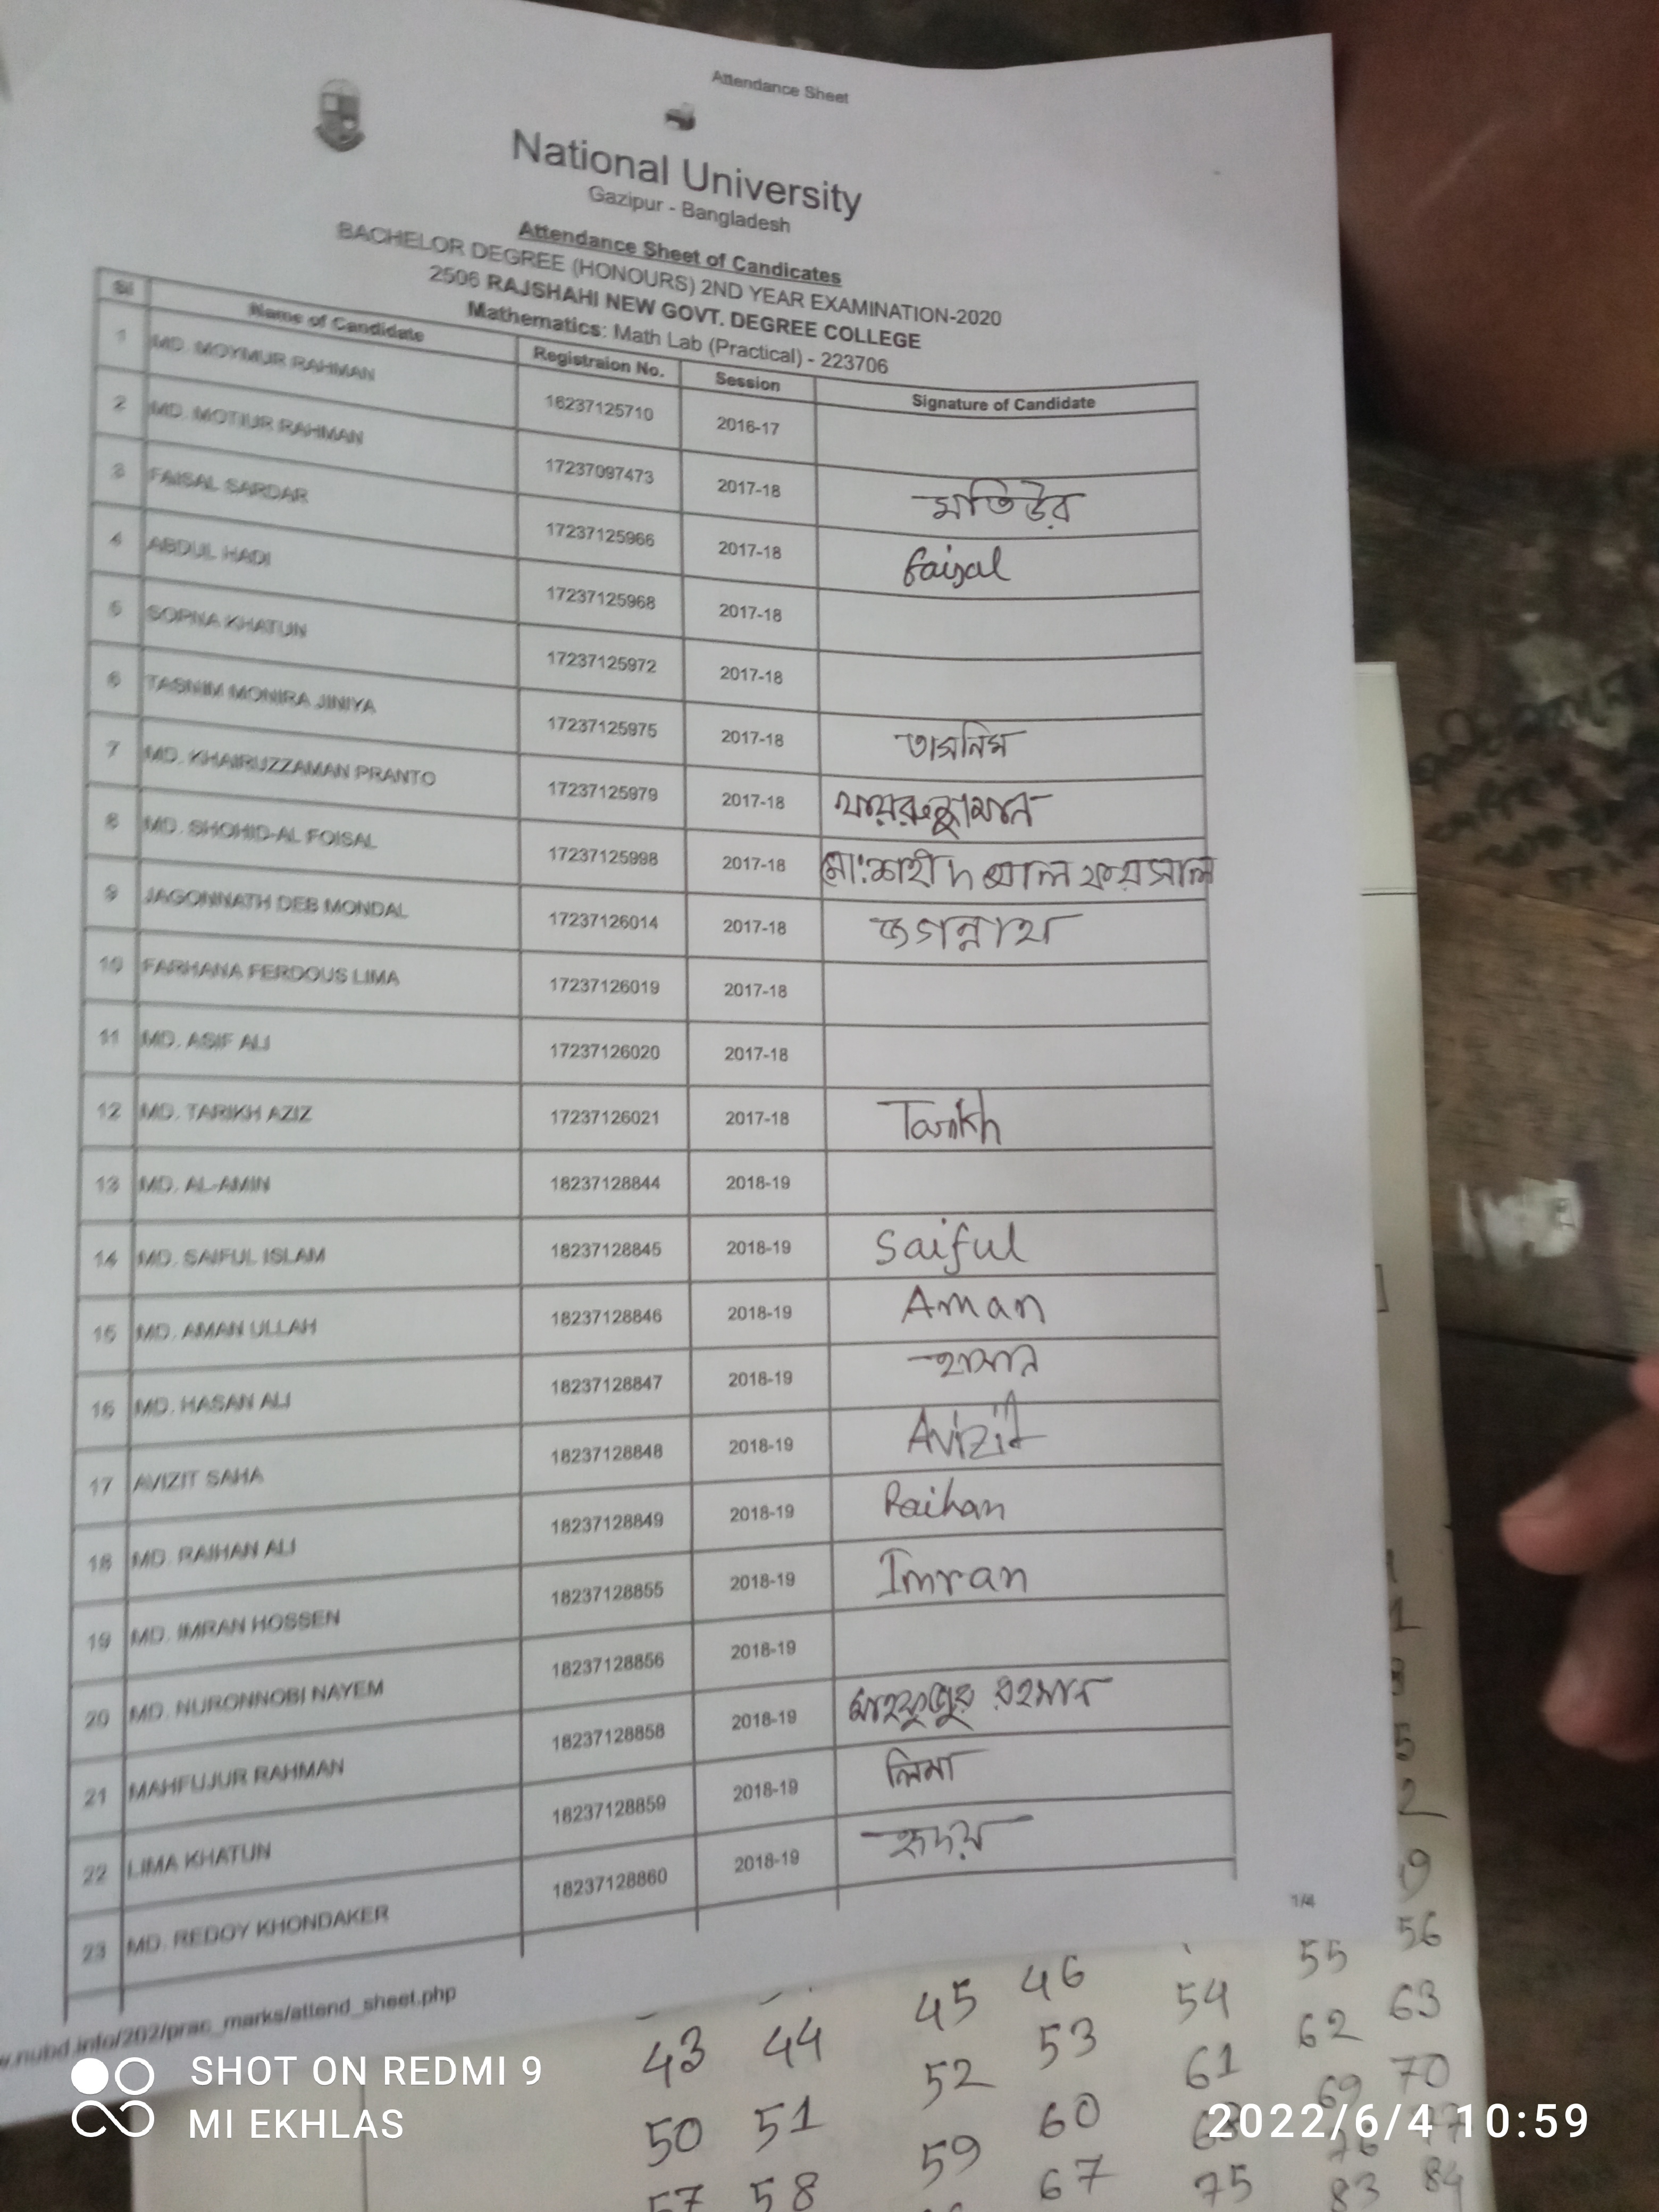 Attendance Sheet
National University
Gazipur - Bangladesh
Attendance Sheet of Candicates
BACHELOR DEGREE (HONOURS) 2ND YEAR EXAMINATION-2020
2506 RAJSHAHI NEW GOVT. DEGREE COLLEGE
Mathematics: Math Lab (Practical) - 223706
Sl Name of Candidate Registraion No. Session Signature of Candidate
1 MD. MOYMUR RAHMAN 16237125710 2016-17
2 MD. MOTIUR RAHMAN 17237097473 2017-18 মতিউর
3 FAISAL SARDAR 17237125966 2017-18 Faisal
4 ABDUL HADI 17237125968 2017-18
5 SOPNA KHATUN 17237125972 2017-18
6 TASNIM MONIRA JINIYA 17237125975 2017-18 তাসনিম
7 MD. KHAIRUZZAMAN PRANTO 17237125979 2017-18 খায়রুজ্জামান
8 MD. SHOHID-AL FOISAL 17237125998 2017-18 মো:শাহীদ আল ফয়সাল
9 JAGONNATH DEB MONDAL 17237126014 2017-18 জগন্নাথ
10 FARHANA FERDOUS LIMA 17237126019 2017-18
11 MD. ASIF ALI 17237126020 2017-18
12 MD. TARIKH AZIZ 17237126021 2017-18 Tarikh
13 MD. AL-AMIN 18237128844 2018-19
14 MD. SAIFUL ISLAM 18237128845 2018-19 Saiful
15 MD. AMAN ULLAH 18237128846 2018-19 Aman
16 MD. HASAN ALI 18237128847 2018-19 হাসান
17 AVIZIT SAHA 18237128848 2018-19 Avizit
18 MD. RAIHAN ALI 18237128849 2018-19 Raihan
19 MD. IMRAN HOSSEN 18237128855 2018-19 Imran
20 MD. NURONNOBI NAYEM 18237128856 2018-19
21 MAHFUJUR RAHMAN 18237128858 2018-19 মাহফুজুর রহমান
22 LIMA KHATUN 18237128859 2018-19 লিমা
23 MD. REDOY KHONDAKER 18237128860 2018-19 হৃদয়
1/4
.nubd.info/202/prac_marks/attend_sheet.php
43 44 45 46 54 55 56
50 51 52 53 61 62 63
57 58 59 60 68 69 70
67 75 76 77
83 84
SHOT ON REDMI 9
MI EKHLAS
2022/6/4 10:59